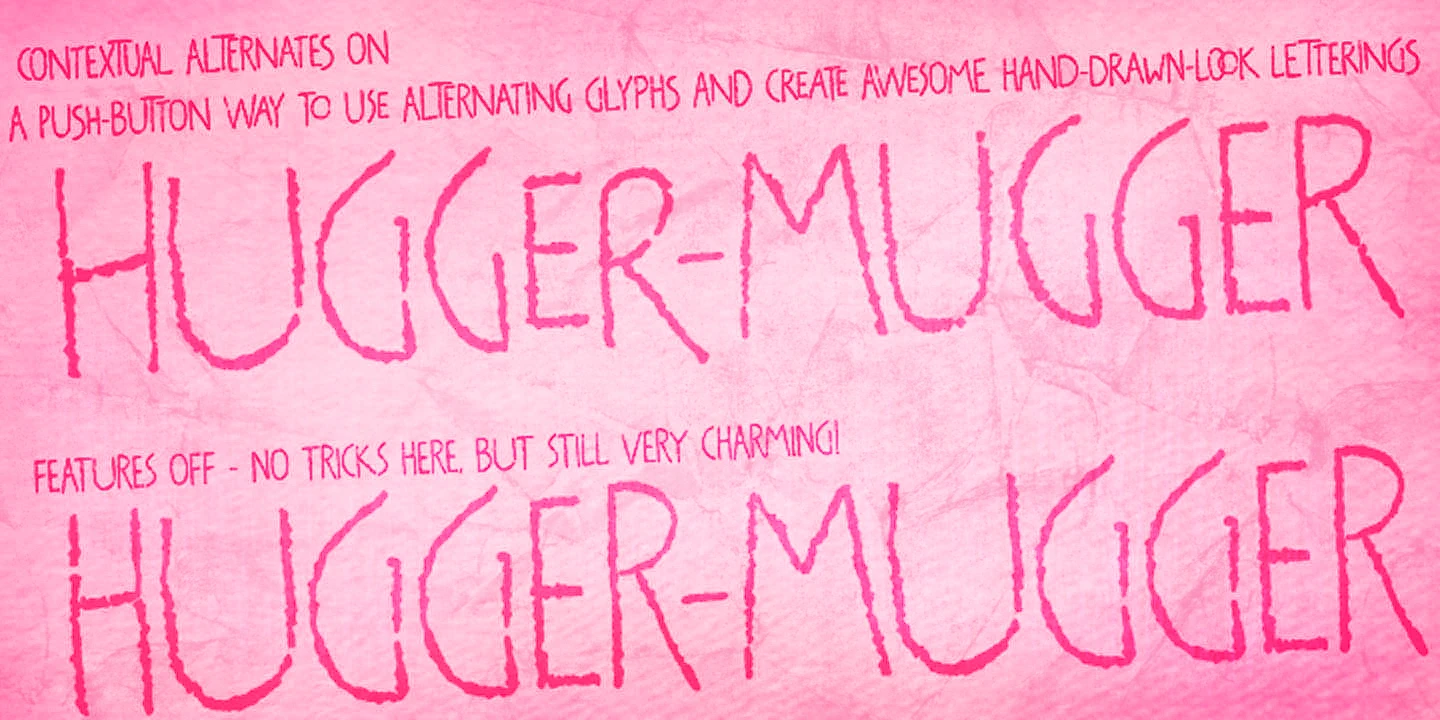 CONTEXTUAL ALTERNATES ON
A PUSH-BUTTON WAY TO USE ALTERNATING GLYPHS AND CREATE AWESOME HAND-DRAWN-LOOK LETTERINGS
HUGGER-MUGGER
FEATURES OFF - NO TRICKS HERE, BUT STILL VERY CHARMING!
HUGGER-MUGGER